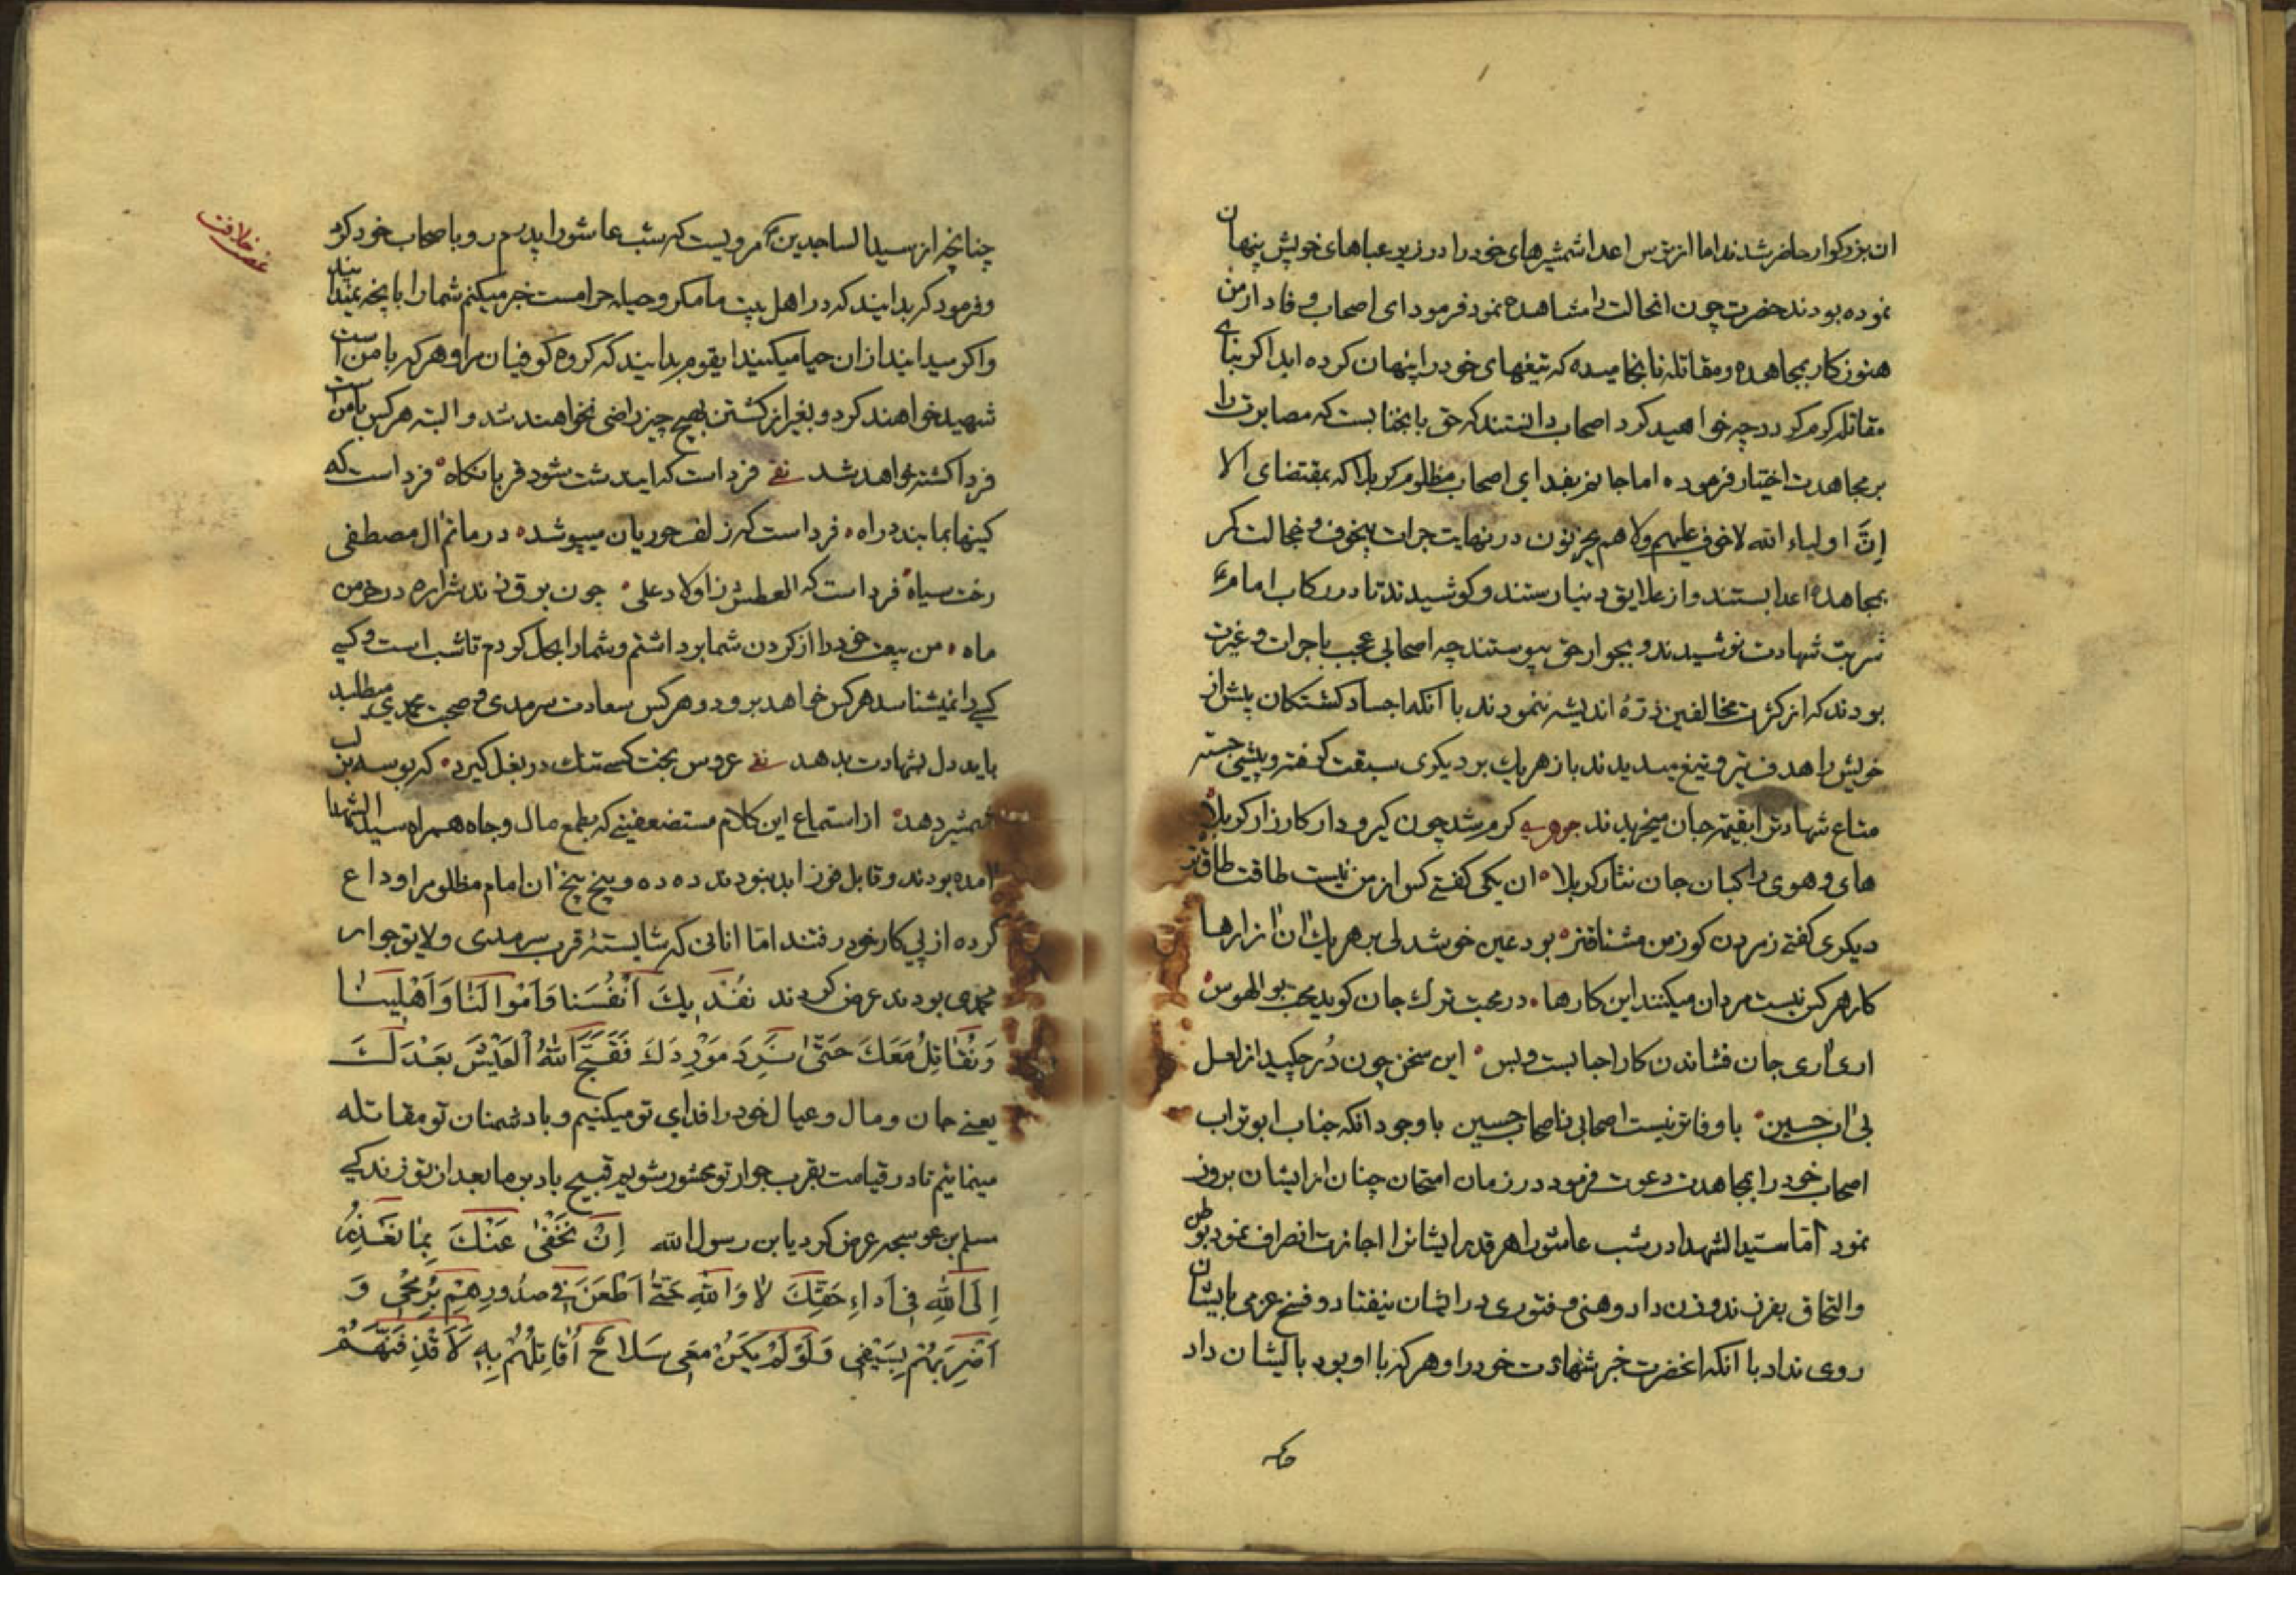 ان بزرکوار حاضر شدند اما از ترس اعدا شمشیرهای خود را در زیر عباهای خویش پنهان
نموده بودند حضرت چون انحالت را مشاهده نمود فرمود ای اصحاب وفادار من
هنوز کار بمجاهده و مقاتله نانجامیده که تیغهای خود را پنهان کرده اید اکر بنای
مقاتله کرم کردد چه خواهید کرد اصحاب دانستند که حق بانجنابست که مصابرت را
بر مجاهدت اختیار فرموده اما جانم بفدای اصحاب مظلوم کربلا که بمقتضای الا
اِنَّ اولیاء الله لا خوف علیهم ولا هم یحزنون در نهایت جرات بیخوف و خجالت کمر
بمجاهده اعدا بستند و از علایق دنیا رستند و کوشیدند تا در رکاب امام ع
شربت شهادت نوشیدند و بجوار حق پیوستند چه اصحابی عجب با جرات و غیرت
بودند که از کثرت مخالفین ذرهٔ اندیشه ننمودند با آنکه اجساد کشتکان پیش از
خویش را هدف تیر و تیغ میدیدند باز هر یک بر دیکری سبقت کرفته و پیشی جسته
متاع شهادت را بقیمت جان میخریدند کرم شد چون کیر و دار کارزار کربلا
های و هوی راکبان جان نثار کربلا ان یکی کفتی کس از من نیست طاقت طاقتر
دیکری کفتی ز مردن کو ز من مشتاقتر بود عین خوشدلی بر هر یک ان ازارها
کار هر کس نیست مردان میکنند این کارها در محبت ترک جان کوید محب بوالهوس
اری اری جان فشاندن کار احبابست و بس این سخن چون دُر چکید از لعل
بی اب حسین با وفاتر نیست اصحابی ز اصحاب حسین با وجود انکه جناب ابوتراب
اصحاب خود را بمجاهدت دعوت فرمود در زمان امتحان چنان از ایشان بروز
نمود اما سید الشهدا در شب عاشورا هر قدر ایشانرا اجازت انصراف نمود بوطن
والتحاق بفرزند و زن داد وهنی و فتوری در ایشان نیفتاد و فسخ عزمی بایشان
روی نداد با آنکه انحضرت خبر شهادت خود را و هر که با او بود بایشان داد
چنانچه از سید الساجدین ع مرویست که شب عاشورا پدرم رو باصحاب خود کرد
وفرمود که بدانید که در اهل بیت ما مکر و حیله حرامست خبر میکنم شما را بانچه نمیدانید
واکر میدانید از ان حیا میکنید ایقوم بدانید که کروه کوفیان مرا و هر که با من است
شهید خواهند کرد و بغیر از کشتن بهیچ چیز راضی نخواهند شد و البته هر کس با منست
فردا کشته خواهد شد فرداست که این دشت شود قربانکاه فرداست که
کینها نمایند براه فرداست که زلف حوریان میپوشد در ماتم ال مصطفی
رخت سیاه فرداست که العطش ز اولاد علی چون برق زند شراره در خرمن
ماه من بیعت خود را از کردن شما برداشتم و شما را بحل کردم تا شب است و کسی
کسی را نمیشناسد هر کس خواهد برود و هر کس سعادت سرمدی و صحبت محمدی میطلبد
باید دل بشهادت بدهد عروس بخت کسی تنک در بغل کیرد که بوسه بر لب
شمشیر دهد از استماع این کلام مستضعفینی که بطمع مال و جاه همراه سید الشهدا
امده بودند و قابل فوز ابد نبودند ده ده و پنج پنج ان امام مظلوم را وداع
کرده از پی کار خود رفتند اما انانی که شایستهٔ قرب سرمدی و لایق جوار
محمدی بودند عرض کردند نَفْدیكَ اَنْفُسَنا وَاَمْوالَنا وَاَهْلینا
وَنُقاتِلُ مَعَكَ حَتّی نَرِدَ مَوْرِدَكَ فَقَبَّحَ اللهُ الْعَیْشَ بَعْدَكَ
یعنی جان و مال و عیال خود را فدای تو میکنیم و با دشمنان تو مقاتله
مینمائیم تا در قیامت بقرب جوار تو محشور شویم قبیح باد بر ما بعد از تو زندکی
مسلم بن عوسجه عرض کرد یابن رسول الله اِنْ نَخْفی عَنْكَ بِما نَعْتَذِرُ
اِلَی اللهِ فی اَداءِ حَقِّكَ لا وَاللهِ حَتّی اَطْعَنَ فی صُدُورِهِمْ بِرُمْحی وَ
اَضْرِبَهُمْ بِسَیْفی وَلَوْ لَمْ یَكُنْ مَعی سَلاحٌ اُقاتِلُهُمْ بِهِ لَاَقْذِفَنَّهُمْ